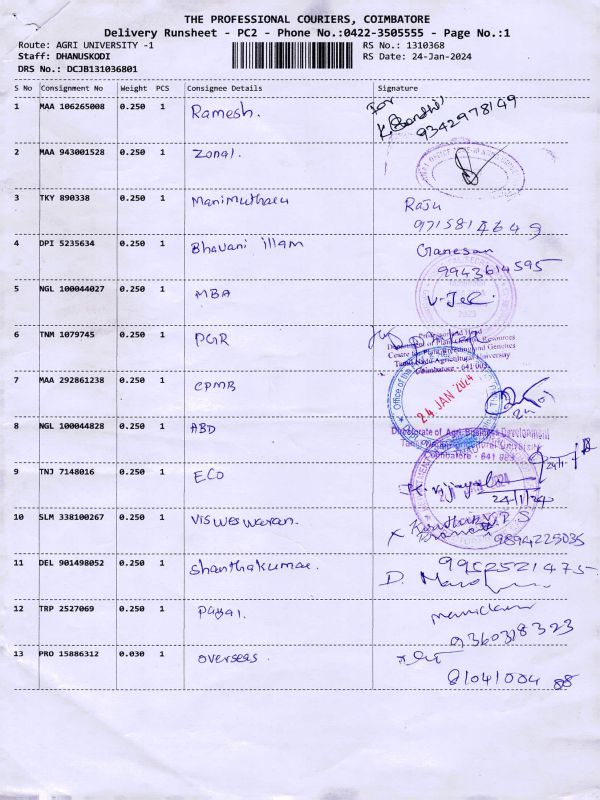 THE PROFESSIONAL COURIERS, COIMBATORE
Delivery Runsheet - PC2 - Phone No.:0422-3505555 - Page No.:1
Route: AGRI UNIVERSITY -1 RS No.: 1310368
Staff: DHANUSKODI RS Date: 24-Jan-2024
DRS No.: DCJB131036801
S No Consignment No Weight PCS Consignee Details Signature
1 MAA 106265008 0.250 1 Ramesh. For
9342978149
2 MAA 943001528 0.250 1 Zonal.
3 TKY 890338 0.250 1 Manimuthu Raju
9715814649
4 DPI 5235634 0.250 1 Bhavani illam Ganesan
9943614595
5 NGL 100044027 0.250 1 MBA
6 TNM 1079745 0.250 1 PGR
Professor and Head
Department of Plant Genetic Resources
Centre for Plant Breeding and Genetics
Tamil Nadu Agricultural University
Coimbatore - 641 003
7 MAA 292861238 0.250 1 CPMB
Office of the
24 JAN 2024
8 NGL 100044828 0.250 1 ABD
Directorate of Agri Business Development
Tamil Nadu Agricultural University
Coimbatore - 641
9 TNJ 7148016 0.250 1 ECO
24/1/24
10 SLM 338100267 0.250 1 Visweswaran.
9894225035
11 DEL 901498052 0.250 1 Shanthakumar. 9952521475
12 TRP 2527069 0.250 1
9360318323
13 PRO 15886312 0.030 1 overseas.
8104100488